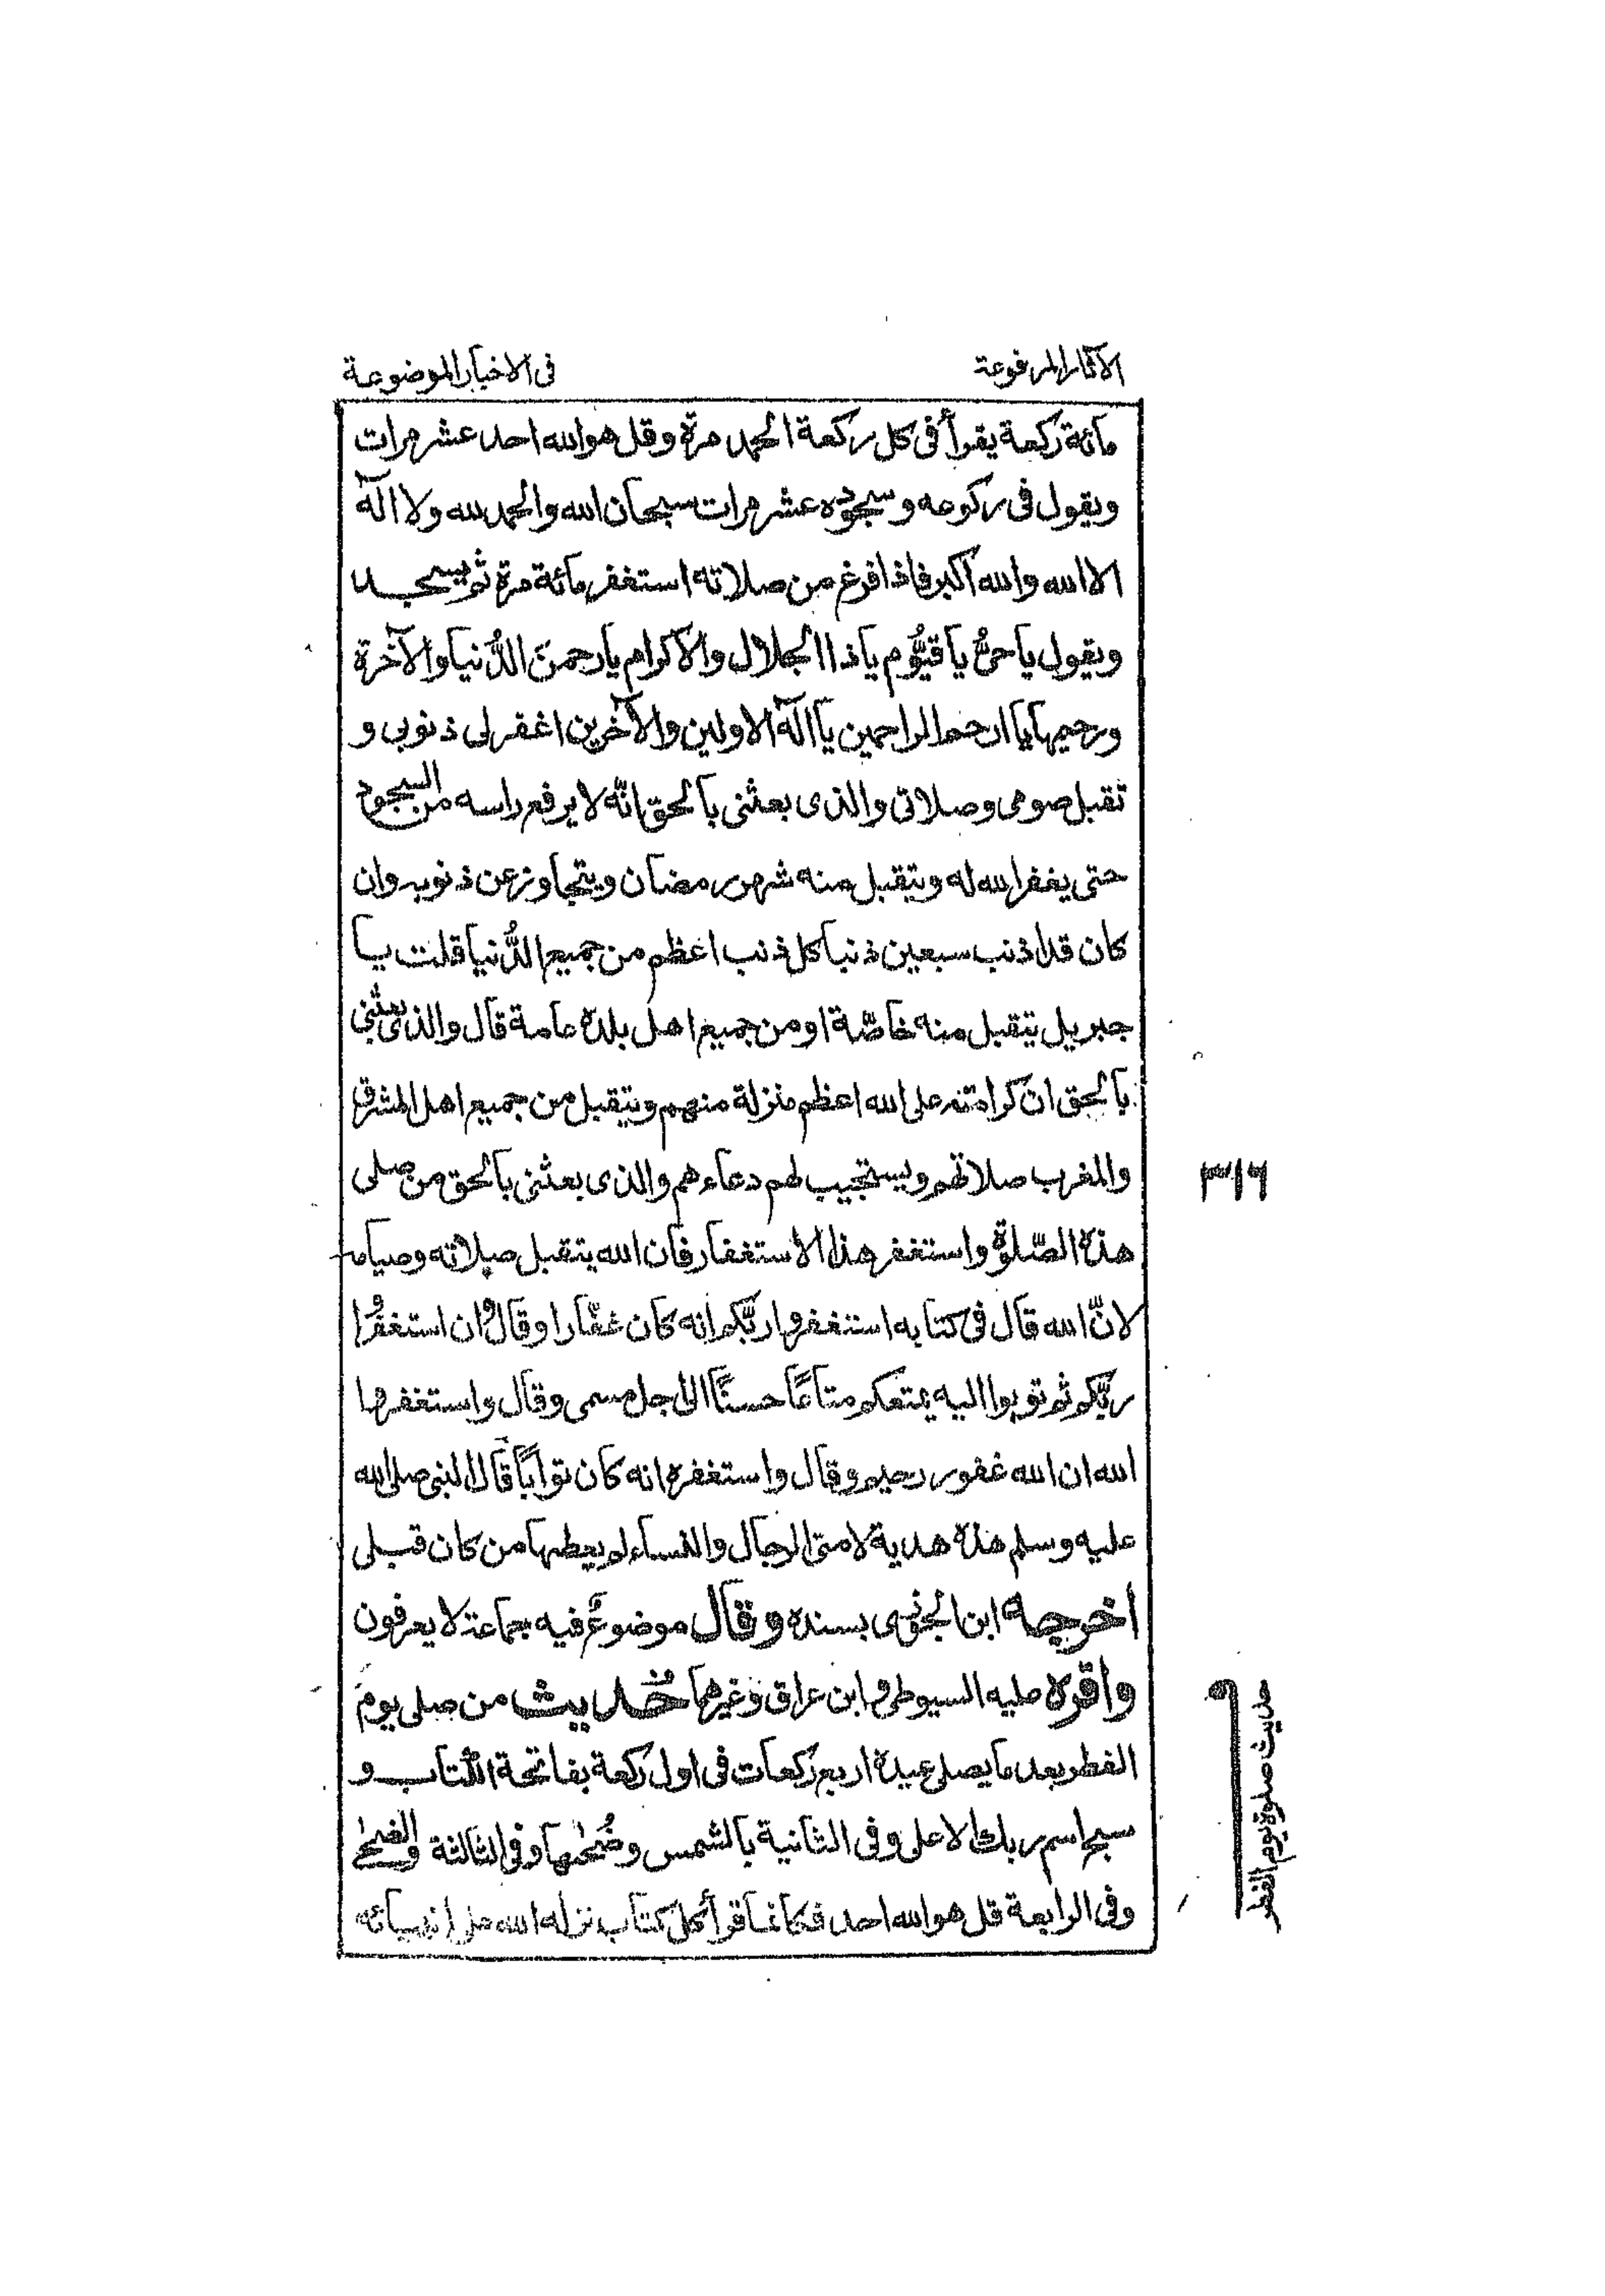 الآثار المرفوعة
فى الاخبار الموضوعة
مائة ركعة يقرأ فى كل ركعة الحمد مرة وقل هو الله احد عشر مرات
ويقول فى ركوعه وسجوده عشر مرات سبحان الله والحمد لله ولا اله
الا الله والله اكبر فاذا فرغ من صلاته استغفر مائة مرة ثم يسجد
ويقول يا حىُّ يا قيُّوم يا ذا الجلال والاكرام يا رحمنَ الدُّنيا والآخرة
ورحيمهما يا ارحم الراحمين يا اله الاولين والآخرين اغفر لى ذنوبى و
تقبل صومى وصلاتى والذى بعثنى بالحق انّه لا يرفع راسه من السجود
حتى يغفر الله له ويتقبل منه شهر رمضان ويتجاوز عن ذنوبه وان
كان قد اذنب سبعين ذنبا كل ذنب اعظم من جميع الدُّنيا قلت يا
جبريل يتقبل منه خاصّة او من جميع اهل بلده عامة قال والذى بعثنى
بالحق ان كرامته على الله اعظم منزلة منهم ويتقبل من جميع اهل المشرق
والمغرب صلاتهم ويستجيب لهم دعاءهم والذى بعثنى بالحق من صلى
هذه الصّلوة واستغفر هذا الاستغفار فان الله يتقبل صلاته وصيامه
لانّ الله قال فى كتابه استغفروا ربّكم انه كان غفّارا وقال وان استغفروا
ربّكم ثم توبوا اليه يمتعكم متاعًا حسنًا الى اجل مسمى وقال واستغفروا
الله ان الله غفور رحيم وقال واستغفره انه كان توابًا قال النبى صلى الله
عليه وسلم هذه هدية لامتى الرجال والنساء لم يعطها من كان قبلى
اخرجه ابن الجوزى بسنده وقال موضوعٌ فيه جماعة لا يعرفون
واقره عليه السيوطى وابن عراق وغيرهما حديث من صلى يوم
الفطر بعد ما يصلى عيده اربع ركعات فى اول ركعة بفاتحة الكتاب و
سبح اسم ربك الاعلى وفى الثانية بالشمس وضُحٰها وفى الثالثة والضحى
وفى الرابعة قل هو الله احد فكانما قرأ كل كتاب نزله الله على انبيائه
٣١٦
حديث صلوة يوم الفطر